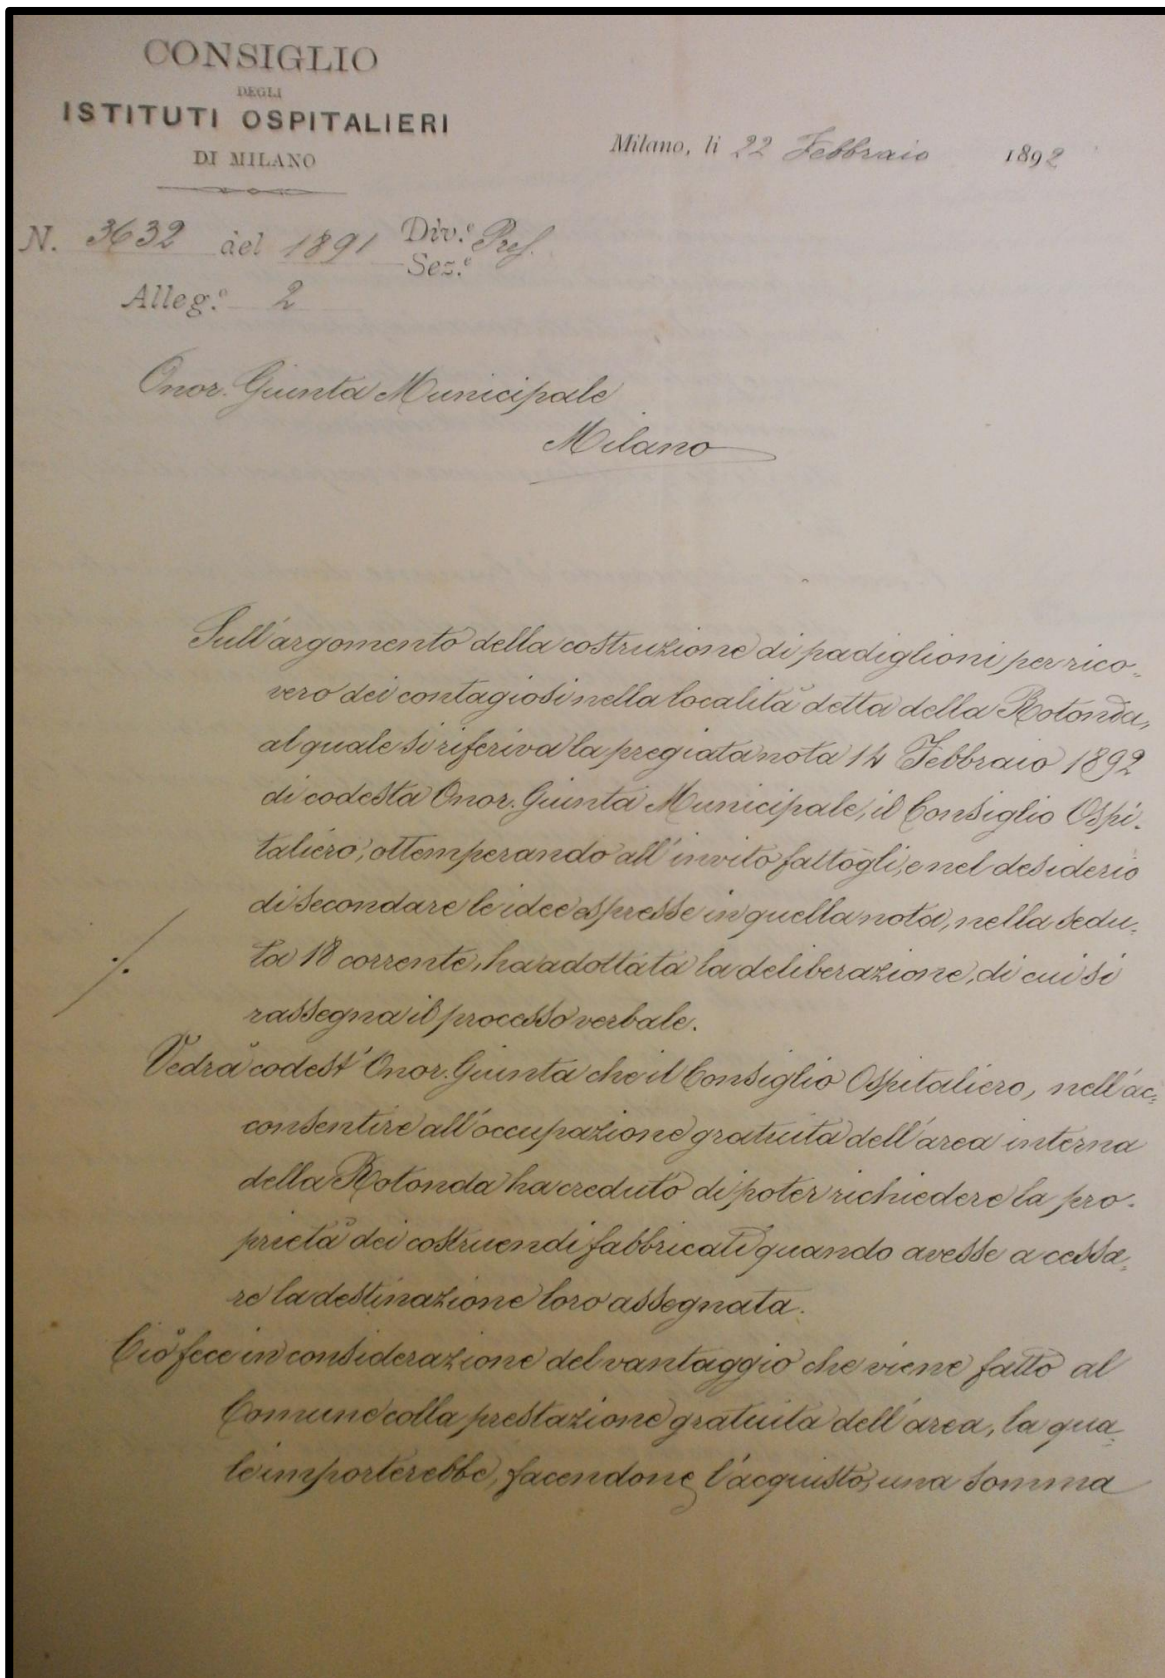 CONSIGLIO
DEGLI
ISTITUTI OSPITALIERI
DI MILANO
Milano, li 22 Febbraio 1892
N. 3632 del 1891 Div.e Pref.
Sez.e
Alleg.i 2
Onor. Giunta Municipale
Milano
Sull'argomento della costruzione di padiglioni per rico-
vero dei contagiosi nella località detta della Rotonda,
al quale si riferiva la pregiata nota 14 Febbraio 1892
di codesta Onor. Giunta Municipale, il Consiglio Ospi-
taliero, ottemperando all'invito fattogli, e nel desiderio
di secondare le idee espresse in quella nota, nella sedu-
ta 18 corrente, ha adottata la deliberazione, di cui si
./. rassegna il processo verbale.
Vedrà codest'Onor. Giunta che il Consiglio Ospitaliero, nell'ac-
consentire all'occupazione gratuita dell'area interna
della Rotonda ha creduto di poter richiedere la pro-
prietà dei costruendi fabbricati quando avesse a cessa-
re la destinazione loro assegnata.
Ciò fece in considerazione del vantaggio che viene fatto al
Comune colla prestazione gratuita dell'area, la qua-
le importerebbe, facendone l'acquisto, una somma